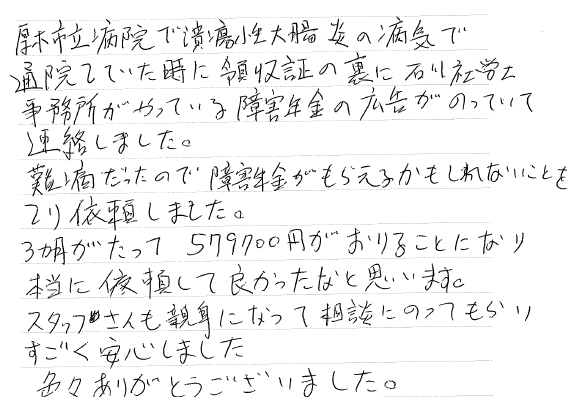 厚木市立病院で潰瘍性大腸炎の病気で
通院していた時に領収証の裏に石川社労士
事務所がやっている障害年金の広告がのっていて
連絡しました。
難病だったので障害年金がもらえるかもしれないことを
しり依頼しました。
3ヵ月がたって 579700円がおりることになり
本当に依頼して良かったなと思います。
スタッフさんも親身になって相談にのってもらい
すごく安心しました
色々ありがとうございました。